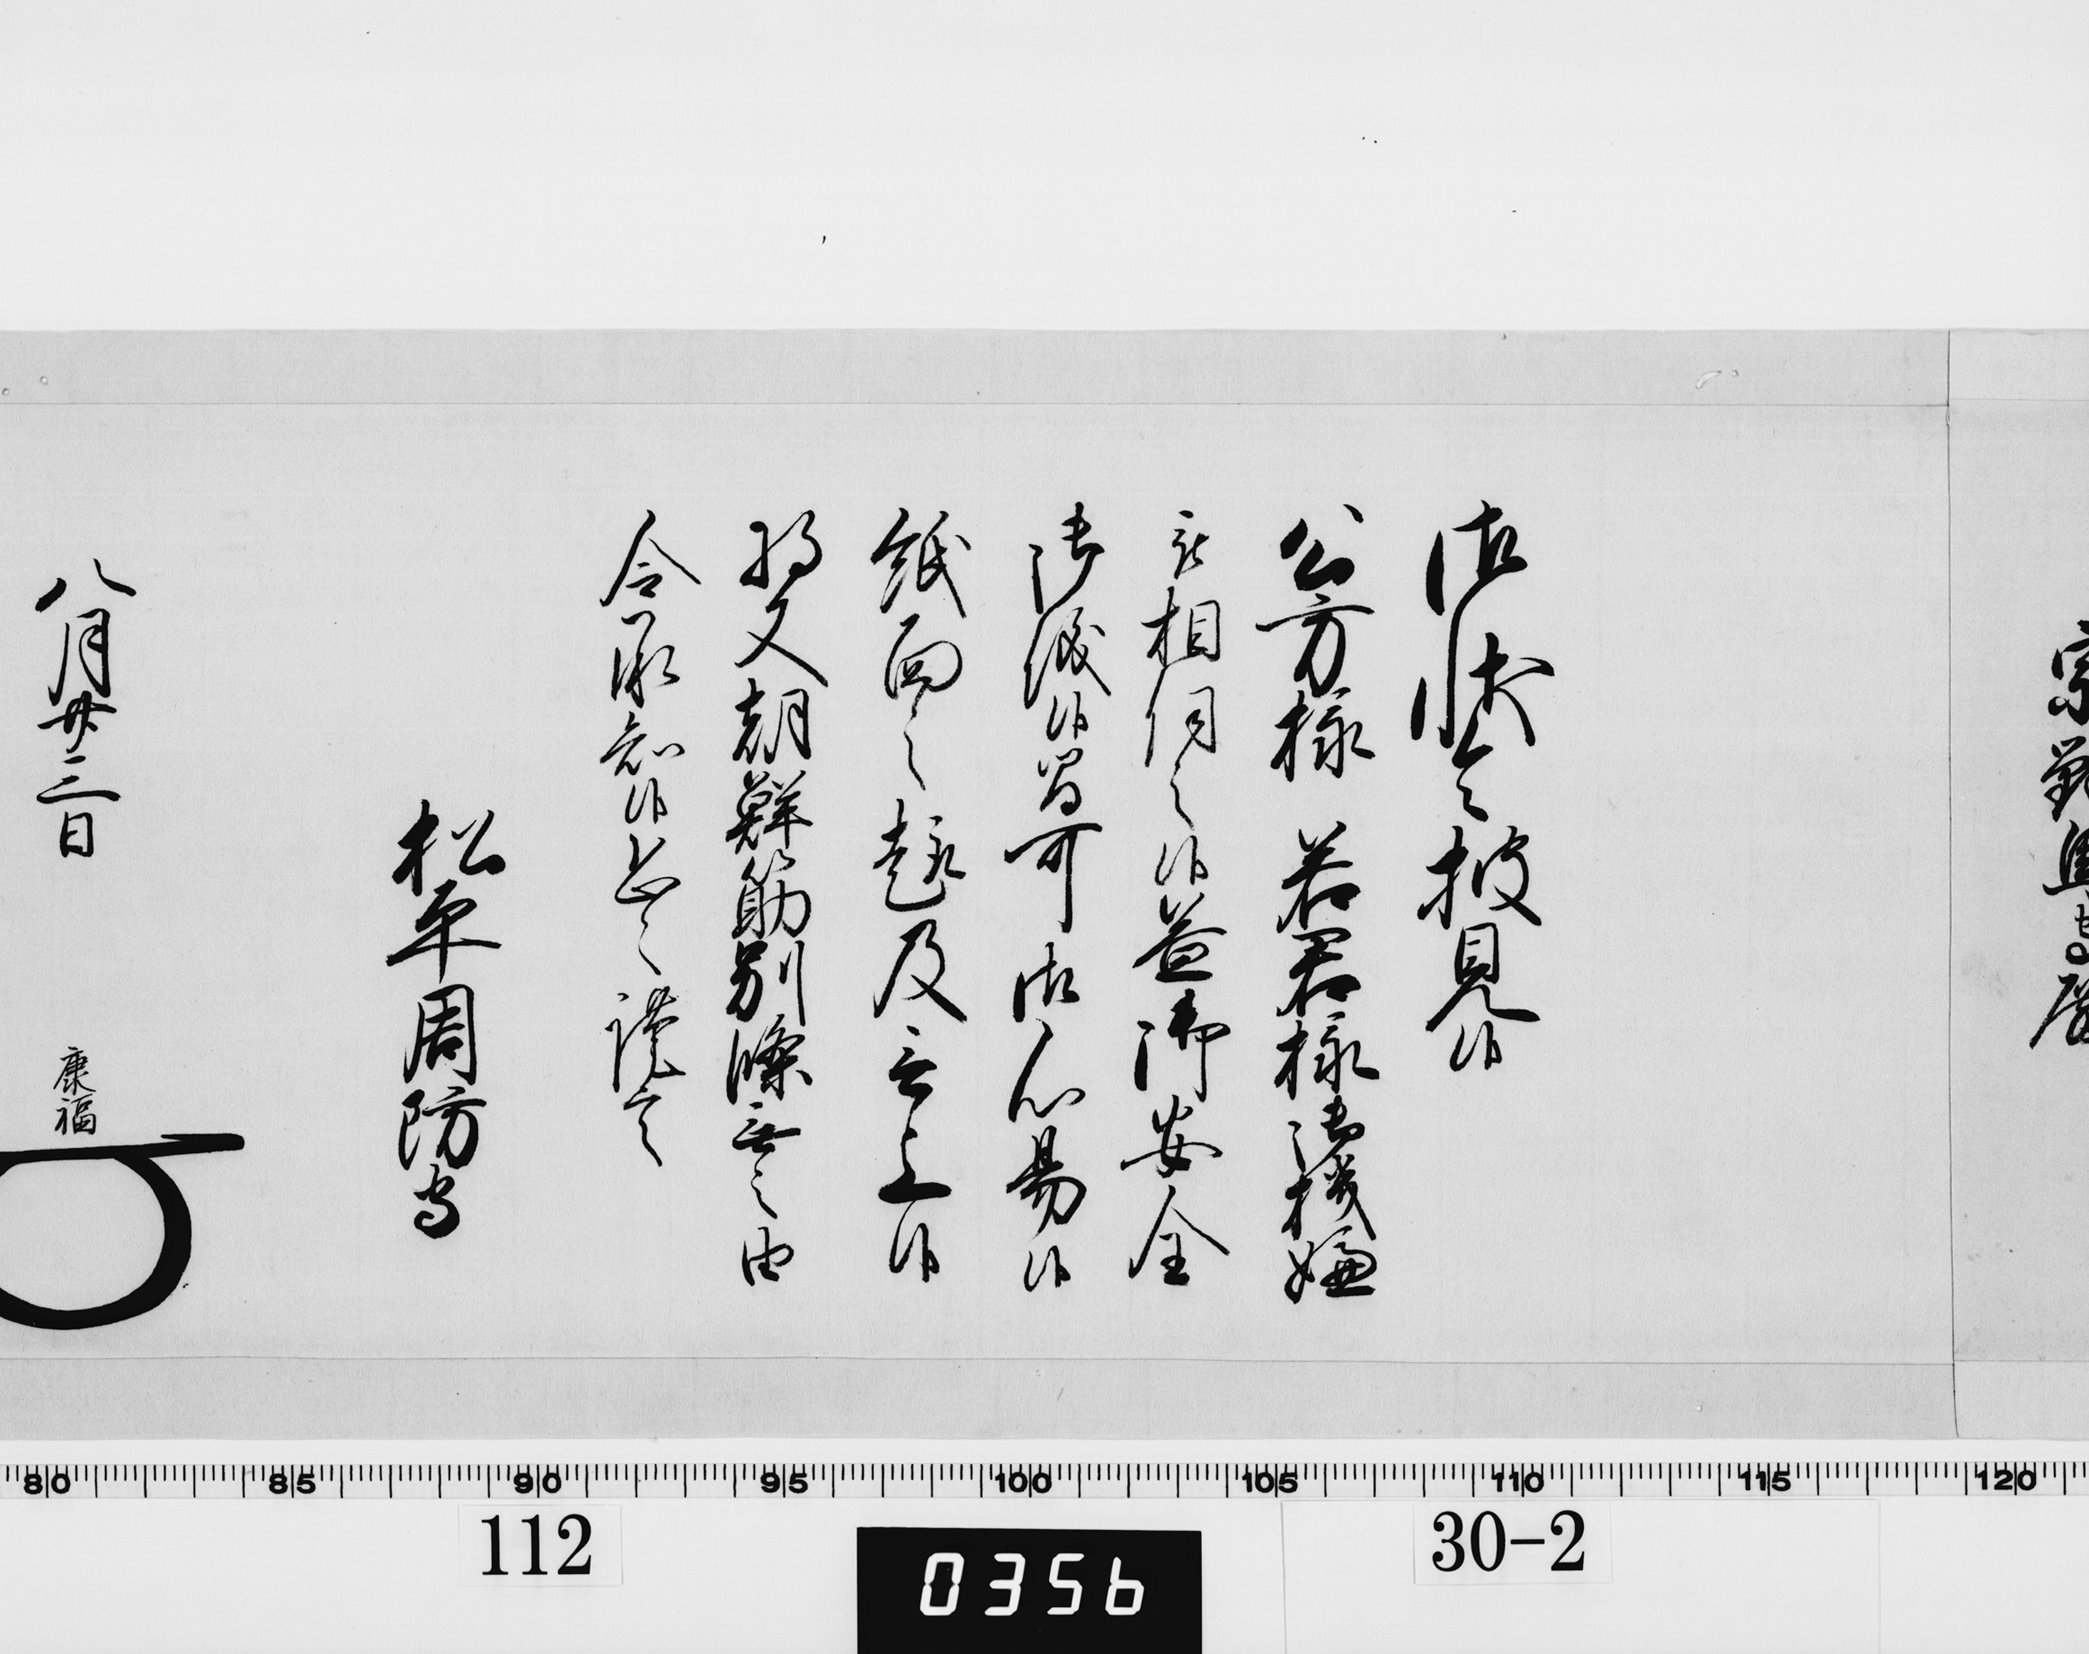 宗對馬守殿
御状令披見候
公方様 若君様御機嫌
被相伺之候益御安全
御儀候間可御心易候
紙面之趣及言上候
将又朝鮮筋別條無之由
令承知候恐々謹言
松平周防守
八月廿三日
康福
80 85 90 95 100 105 110 115 120
112
0356
30-2